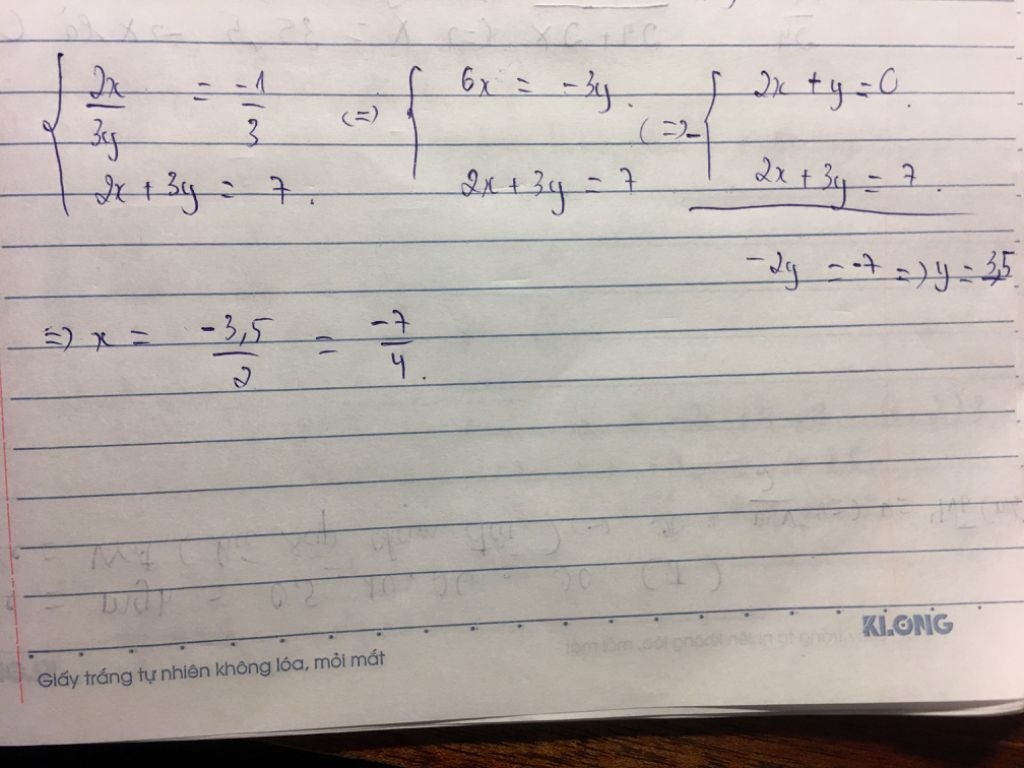 2x/3y = -1/3 (=) 6x = -3y. (=) 2x + y = 0.
2x + 3y = 7. 2x + 3y = 7 2x + 3y = 7.
-2y = -7 => y = 3,5
=> x = -3,5/2 = -7/4.
KLONG
Giấy trắng tự nhiên không lóa, mỏi mắt